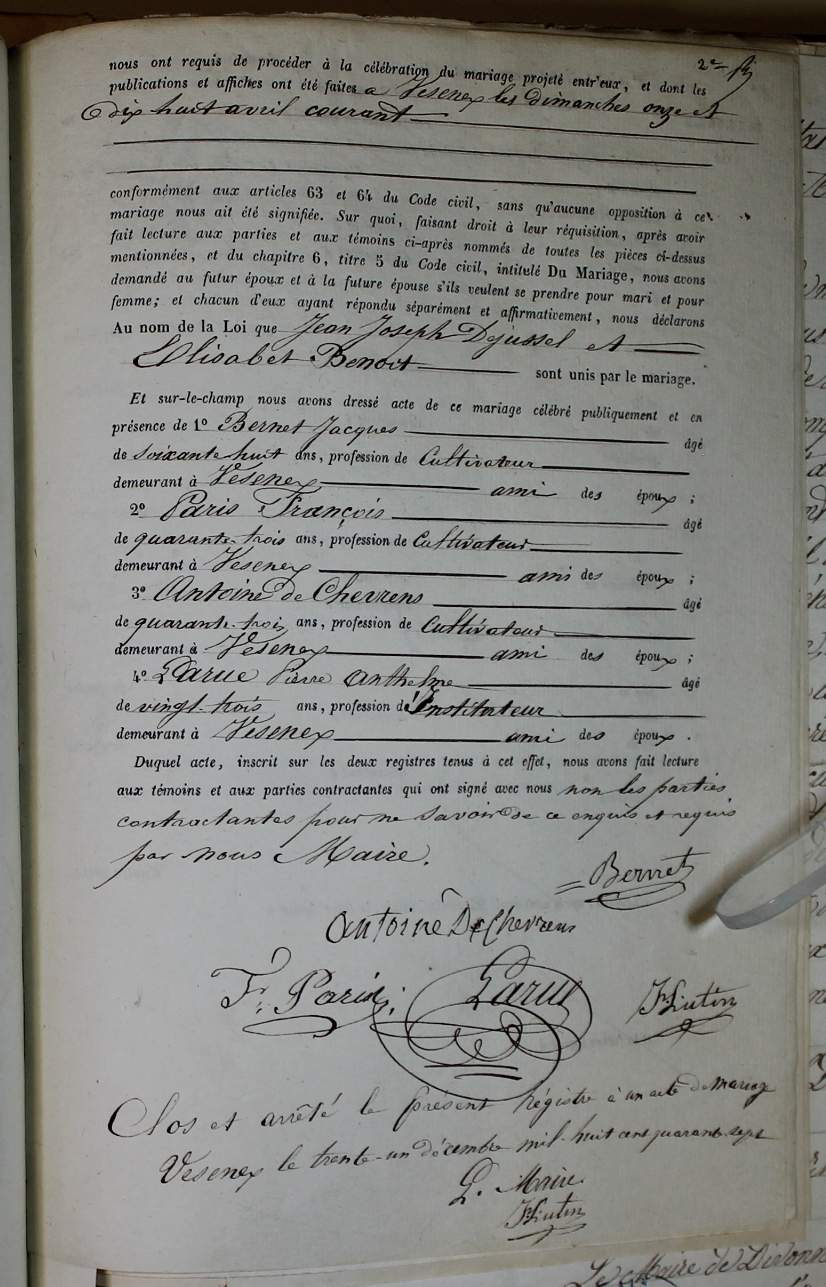 nous ont requis de procéder à la célébration du mariage projeté entr'eux, et dont les
publications et affiches ont été faites a Vesenex les dimanches onze et
dix huit avril courant
conformément aux articles 63 et 64 du Code civil, sans qu'aucune opposition à ce
mariage nous ait été signifiée. Sur quoi, faisant droit à leur réquisition, après avoir
fait lecture aux parties et aux témoins ci-après nommés de toutes les pièces ci-dessus
mentionnées, et du chapitre 6, titre 5 du Code civil, intitulé Du Mariage, nous avons
demandé au futur époux et à la future épouse s'ils veulent se prendre pour mari et pour
femme; et chacun d'eux ayant répondu séparément et affirmativement, nous déclarons
Au nom de la Loi que Jean Joseph Dejussel et
Elisabet Benoit sont unis par le mariage.
Et sur-le-champ nous avons dressé acte de ce mariage célébré publiquement et en
présence de 1º Bernet Jacques âgé
de soixante huit ans, profession de Cultivateur
demeurant à Vesenex ami des époux;
2º Paris François âgé
de quarante-trois ans, profession de Cultivateur
demeurant à Vesenex ami des époux;
3º Antoine de Chevrens âgé
de quarante-trois ans, profession de Cultivateur
demeurant à Vesenex ami des époux;
4º Larue Pierre Anthelme âgé
de vingt-trois ans, profession d'Instituteur
demeurant à Vesenex ami des époux.
Duquel acte, inscrit sur les deux registres tenus à cet effet, nous avons fait lecture
aux témoins et aux parties contractantes qui ont signé avec nous non les parties
contractantes pour ne savoir de ce enquis et requis
par nous Maire.
Bernet
Antoine De Chevrens
Fs. Paris Larue
Clos et arrêté le présent Régistre à un acte de mariage
Vesenex le trente-un décembre mil-huit cent quarante-sept
L. Maire
Le Maire de Divonne